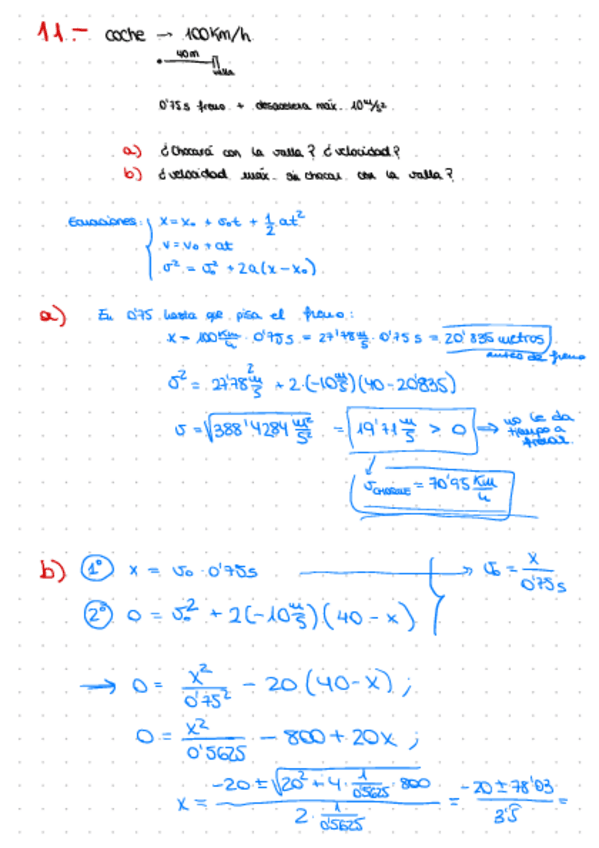 11.- coche → 100Km/h
40m
valla
0'75s freno + desacelera máx. 10 m/s²
a) ¿Chocará con la valla? ¿velocidad?
b) ¿velocidad máx. sin chocar con la valla?
Ecuaciones: x = x₀ + v₀t + 1/2 at²
v = v₀ + at
v² = v₀² + 2a(x - x₀)
a) En 0'75 hasta que pisa el freno:
x = 100 Km/h · 0'75s = 27'78 m/s · 0'75 s = 20'835 metros
antes de freno
v² = 27'78² m/s + 2·(-10 m/s)(40 - 20'835)
v = √388'4284 m²/s² = 19'71 m/s > 0 → no le da tiempo a frenar
v CHOQUE = 70'95 Km/h
b) 1º x = v₀ · 0'75s → v₀ = x/0'75s
2º 0 = v₀² + 2(-10 m/s)(40 - x)
→ 0 = x²/0'75² - 20·(40-x) ;
0 = x²/0'5625 - 800 + 20x ;
x = (-20 ± √(20² + 4 · 1/0'5625 · 800))/(2 · 1/0'5625) = (-20 ± 78'03)/3'5 =